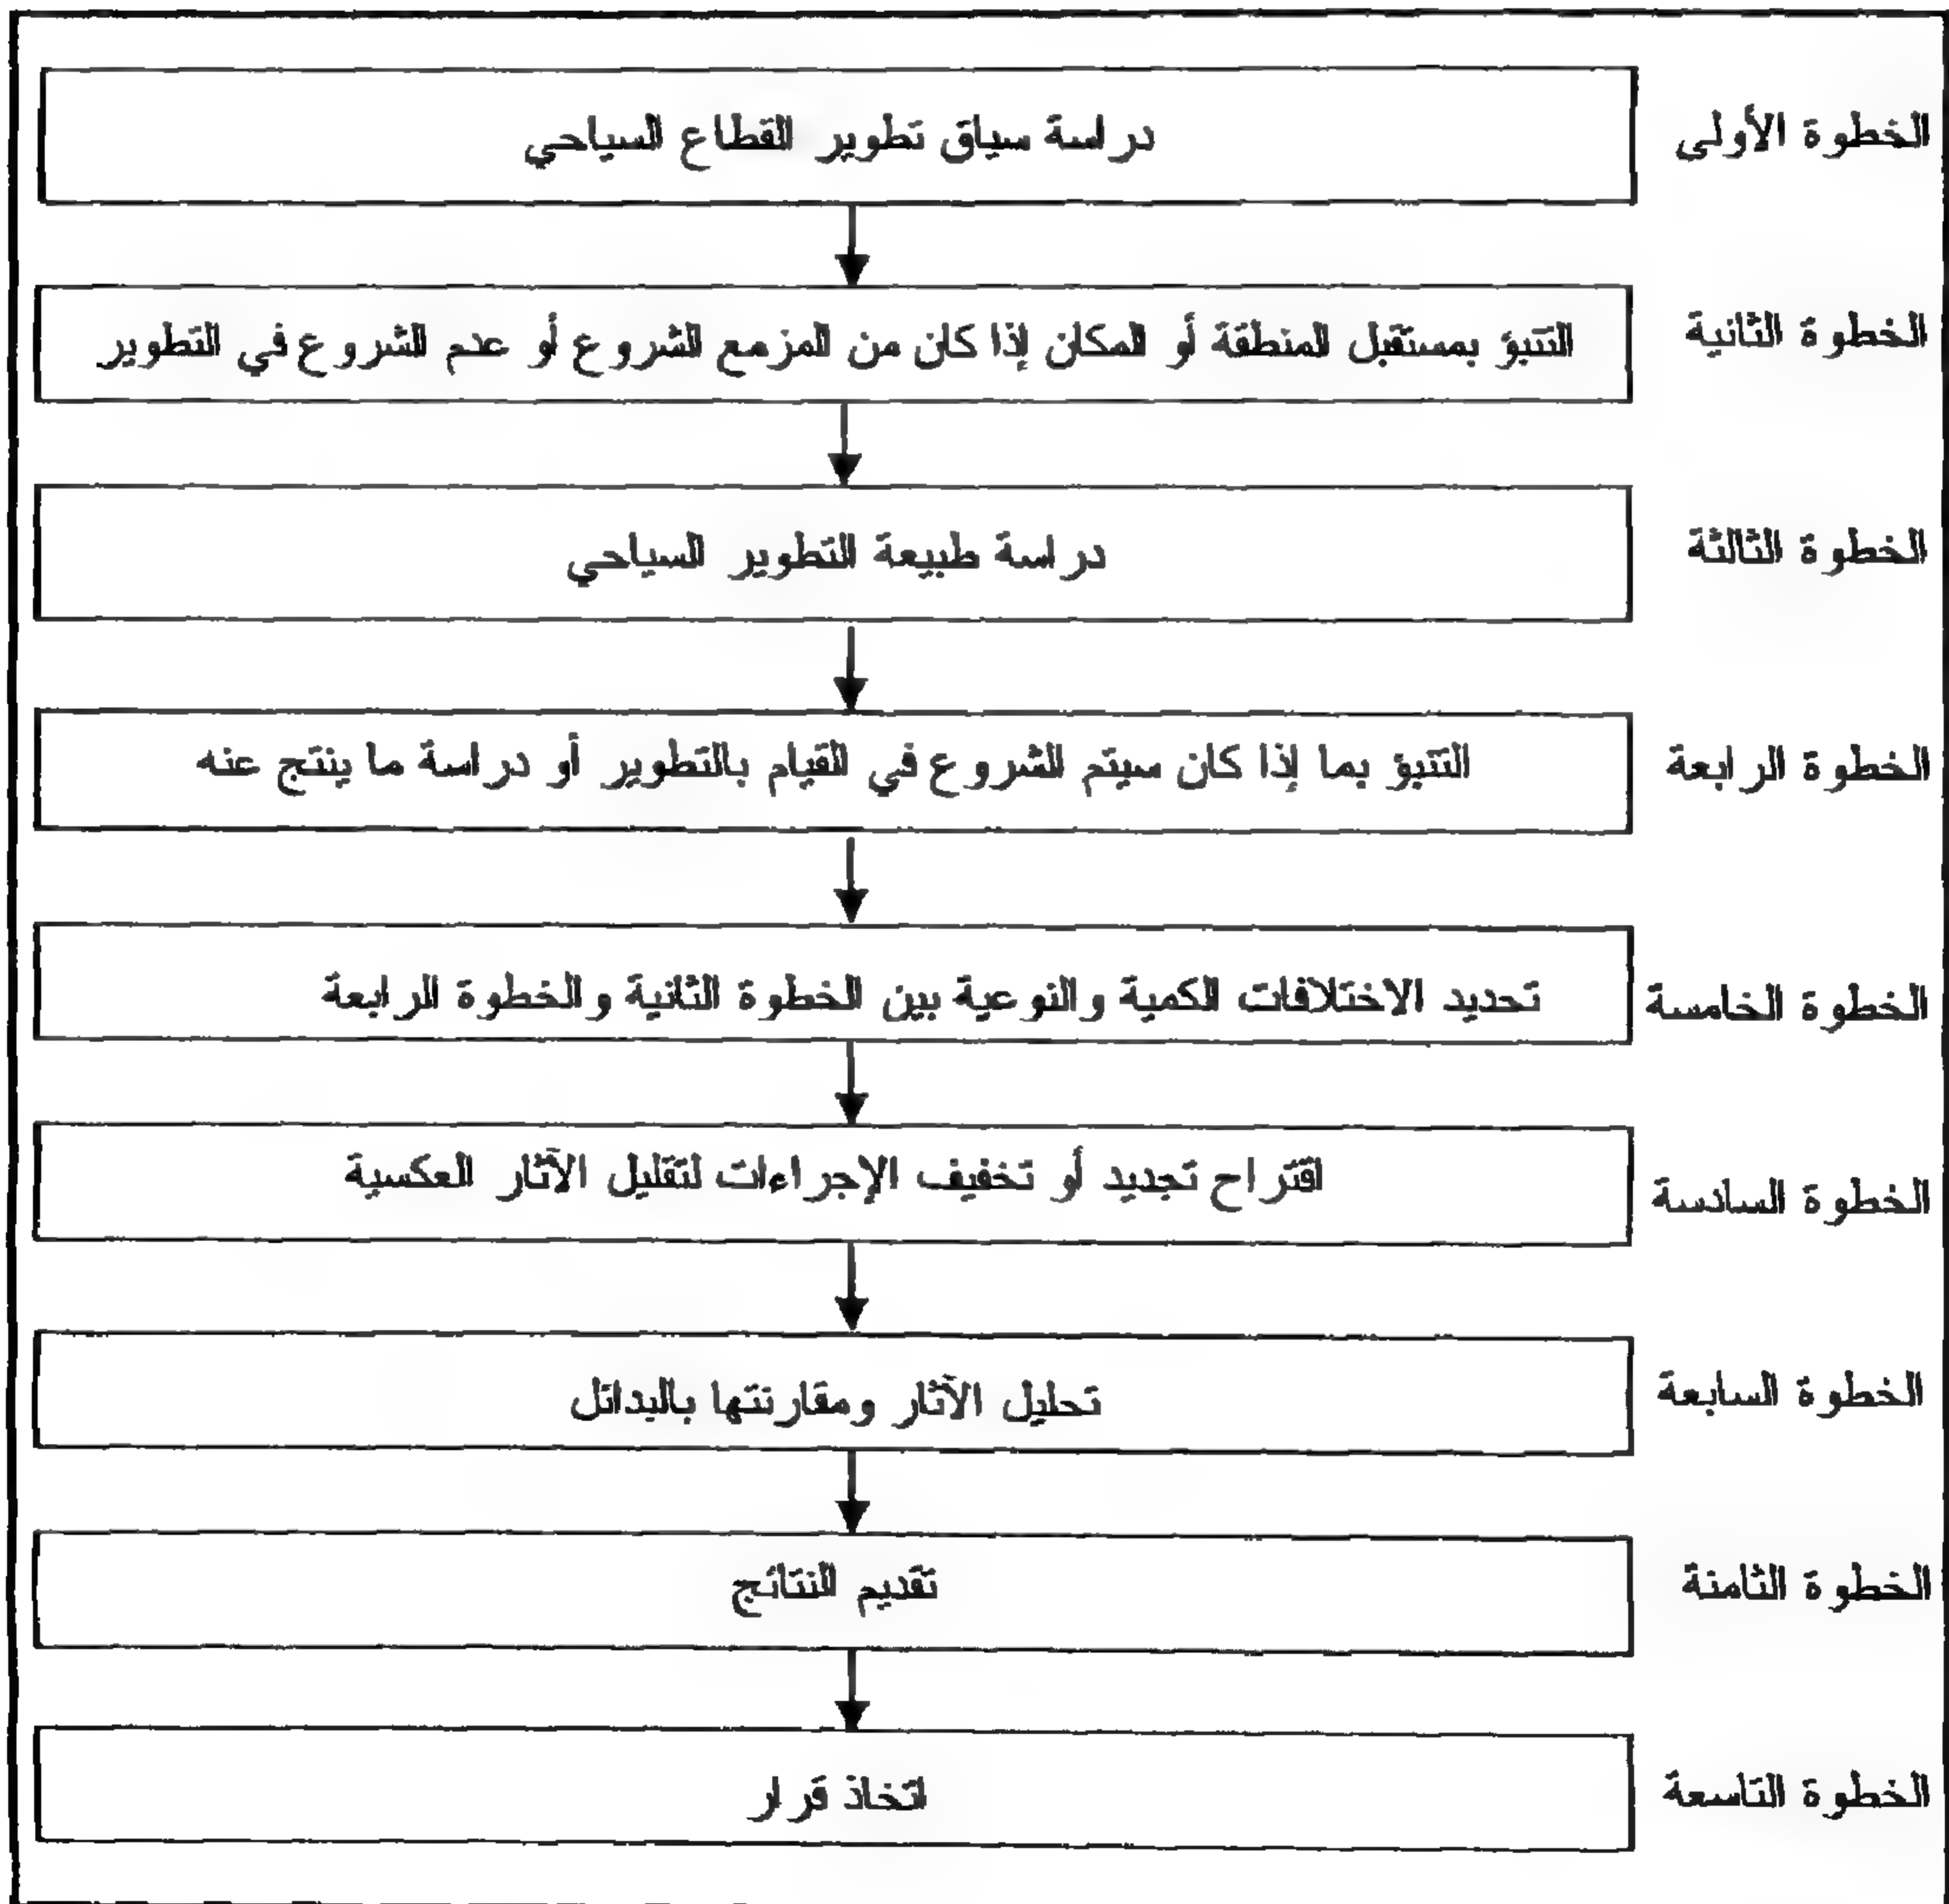 الخطوة الأولى
دراسة سياق تطوير القطاع السياحي
الخطوة الثانية
التنبؤ بمستقبل المنطقة أو المكان إذا كان من المزمع الشروع أو عدم الشروع في التطوير
الخطوة الثالثة
دراسة طبيعة التطوير السياحي
الخطوة الرابعة
التنبؤ بما إذا كان سيتم الشروع في القيام بالتطوير أو دراسة ما ينتج عنه
الخطوة الخامسة
تحديد الاختلافات الكمية والنوعية بين الخطوة الثانية والخطوة الرابعة
الخطوة السادسة
اقتراح تجديد أو تخفيف الإجراءات لتقليل الآثار العكسية
الخطوة السابعة
تحليل الآثار ومقارنتها بالبدائل
الخطوة الثامنة
تقديم النتائج
الخطوة التاسعة
اتخاذ قرار